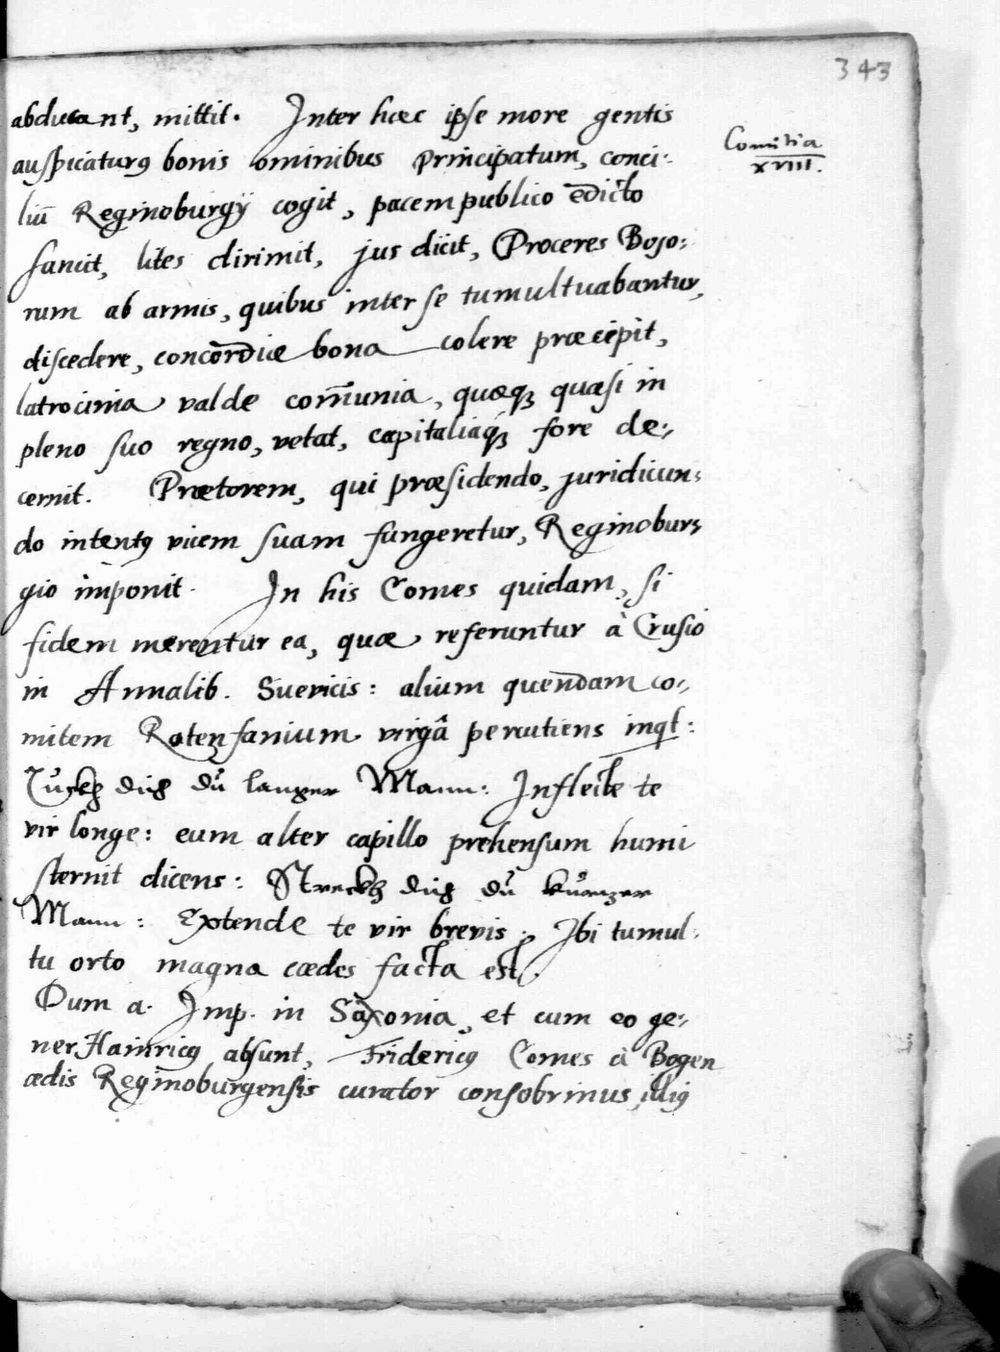 343
abducant, mittit. Inter hæc ipse more gentis
auspicaturꝰ bonis ominibus Principatum, conci-
Comitia
XVIII.
liū Reginoburgÿ cogit, pacem publico edicto
sancit, lites dirimit, jus dicit, Proceres Bojo-
rum ab armis, quibus inter se tumultuabantur,
discedere, concordiæ bona colere præcepit,
latrocinia valde com̄unia, quæqꝫ quasi in
pleno suo regno, vetat, capitaliaqꝫ fore de-
cernit. Prætorem, qui præsidendo, juridicun-
do intentꝰ vicem suam fungeretur, Reginobur-
gio imponit. In his Comes quidam, si
fidem merentur ea, quæ referuntur à Crusio
in Annalib. Suevicis: alium quendam co-
mitem Rotenfanium virgâ percutiens inqt:
Tuckh dich dŭ langer Mann: Inflecte te
vir longe: eum alter capillo prehensum humi
sternit dicens: Streckh dich dŭ kŭrtzer
Mann: Extende te vir brevis; Ibi tumul-
tu orto magna cædes facta est.
Dum a. Imp. in Saxonia, et cum eo ge-
ner Hainricꝰ absunt, Fridericꝰ Comes à Bogen
ædis Reginoburgensis curator consobrinus illiꝰ